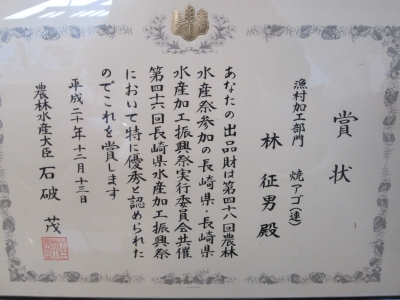 賞状
漁村加工部門 焼アゴ(連)
林 征男 殿
あなたの出品財は第四十八回農林
水産祭参加の長崎県・長崎県
水産加工振興祭実行委員会共催
第四十六回長崎県水産加工振興祭
において特に優秀と認められた
のでこれを賞します
平成二十年十二月十三日
農林水産大臣 石破 茂